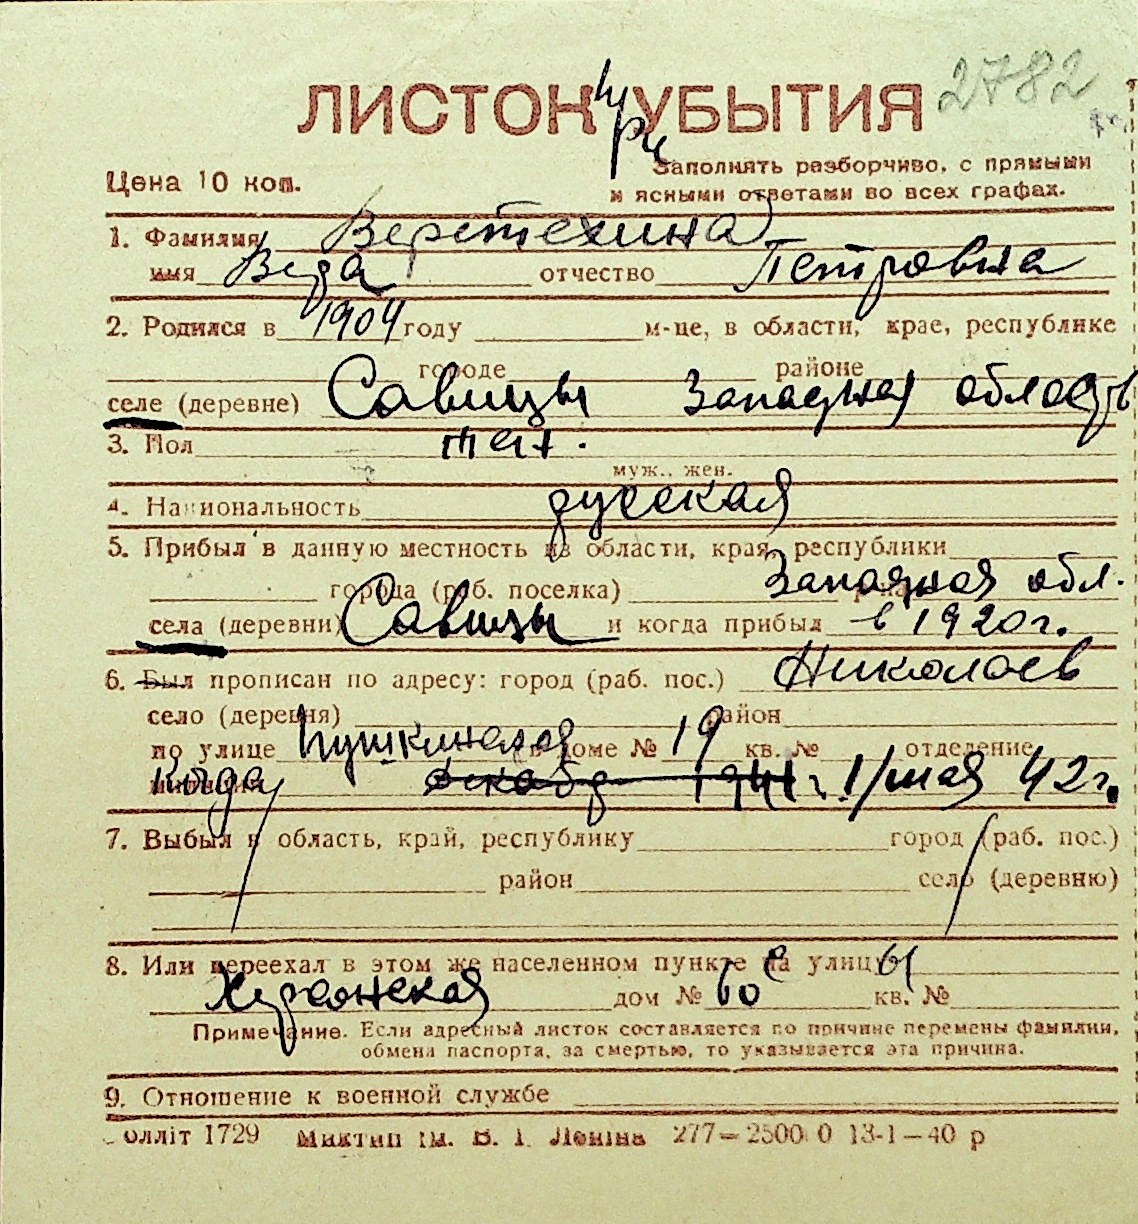 2782
ЛИСТОК УБЫТИЯ
Цена 10 коп.
Заполнять разборчиво, с прямыми
и ясными ответами во всех графах.
1. Фамилия Веретехина
имя Вера отчество Петровна
2. Родился в 1904 году м-це, в области, крае, республике
городе районе
селе (деревне) Савицы Западная область
3. Пол жен.
муж., жен.
4. Национальность русская
5. Прибыл в данную местность из области, края, республики
города (раб. поселка) Западная обл.
села (деревни) Савицы и когда прибыл в 1920 г.
6. Был прописан по адресу: город (раб. пос.) Николаев
село (деревня) район
по улице Пушкинская доме № 19 кв. № отделение
милиции 1941 г. 1/мая 42 г.
7. Выбыл в область, край, республику город (раб. пос.)
район село (деревню)
8. Или переехал в этом же населенном пункте на улицу
Херсонская дом № 60 кв. №
Примечание. Если адресный листок составляется по причине перемены фамилии,
обмена паспорта, за смертью, то указывается эта причина.
9. Отношение к военной службе
олліт 1729 Миктип ім. В. І. Леніна 277—2500 0 13-1—40 р